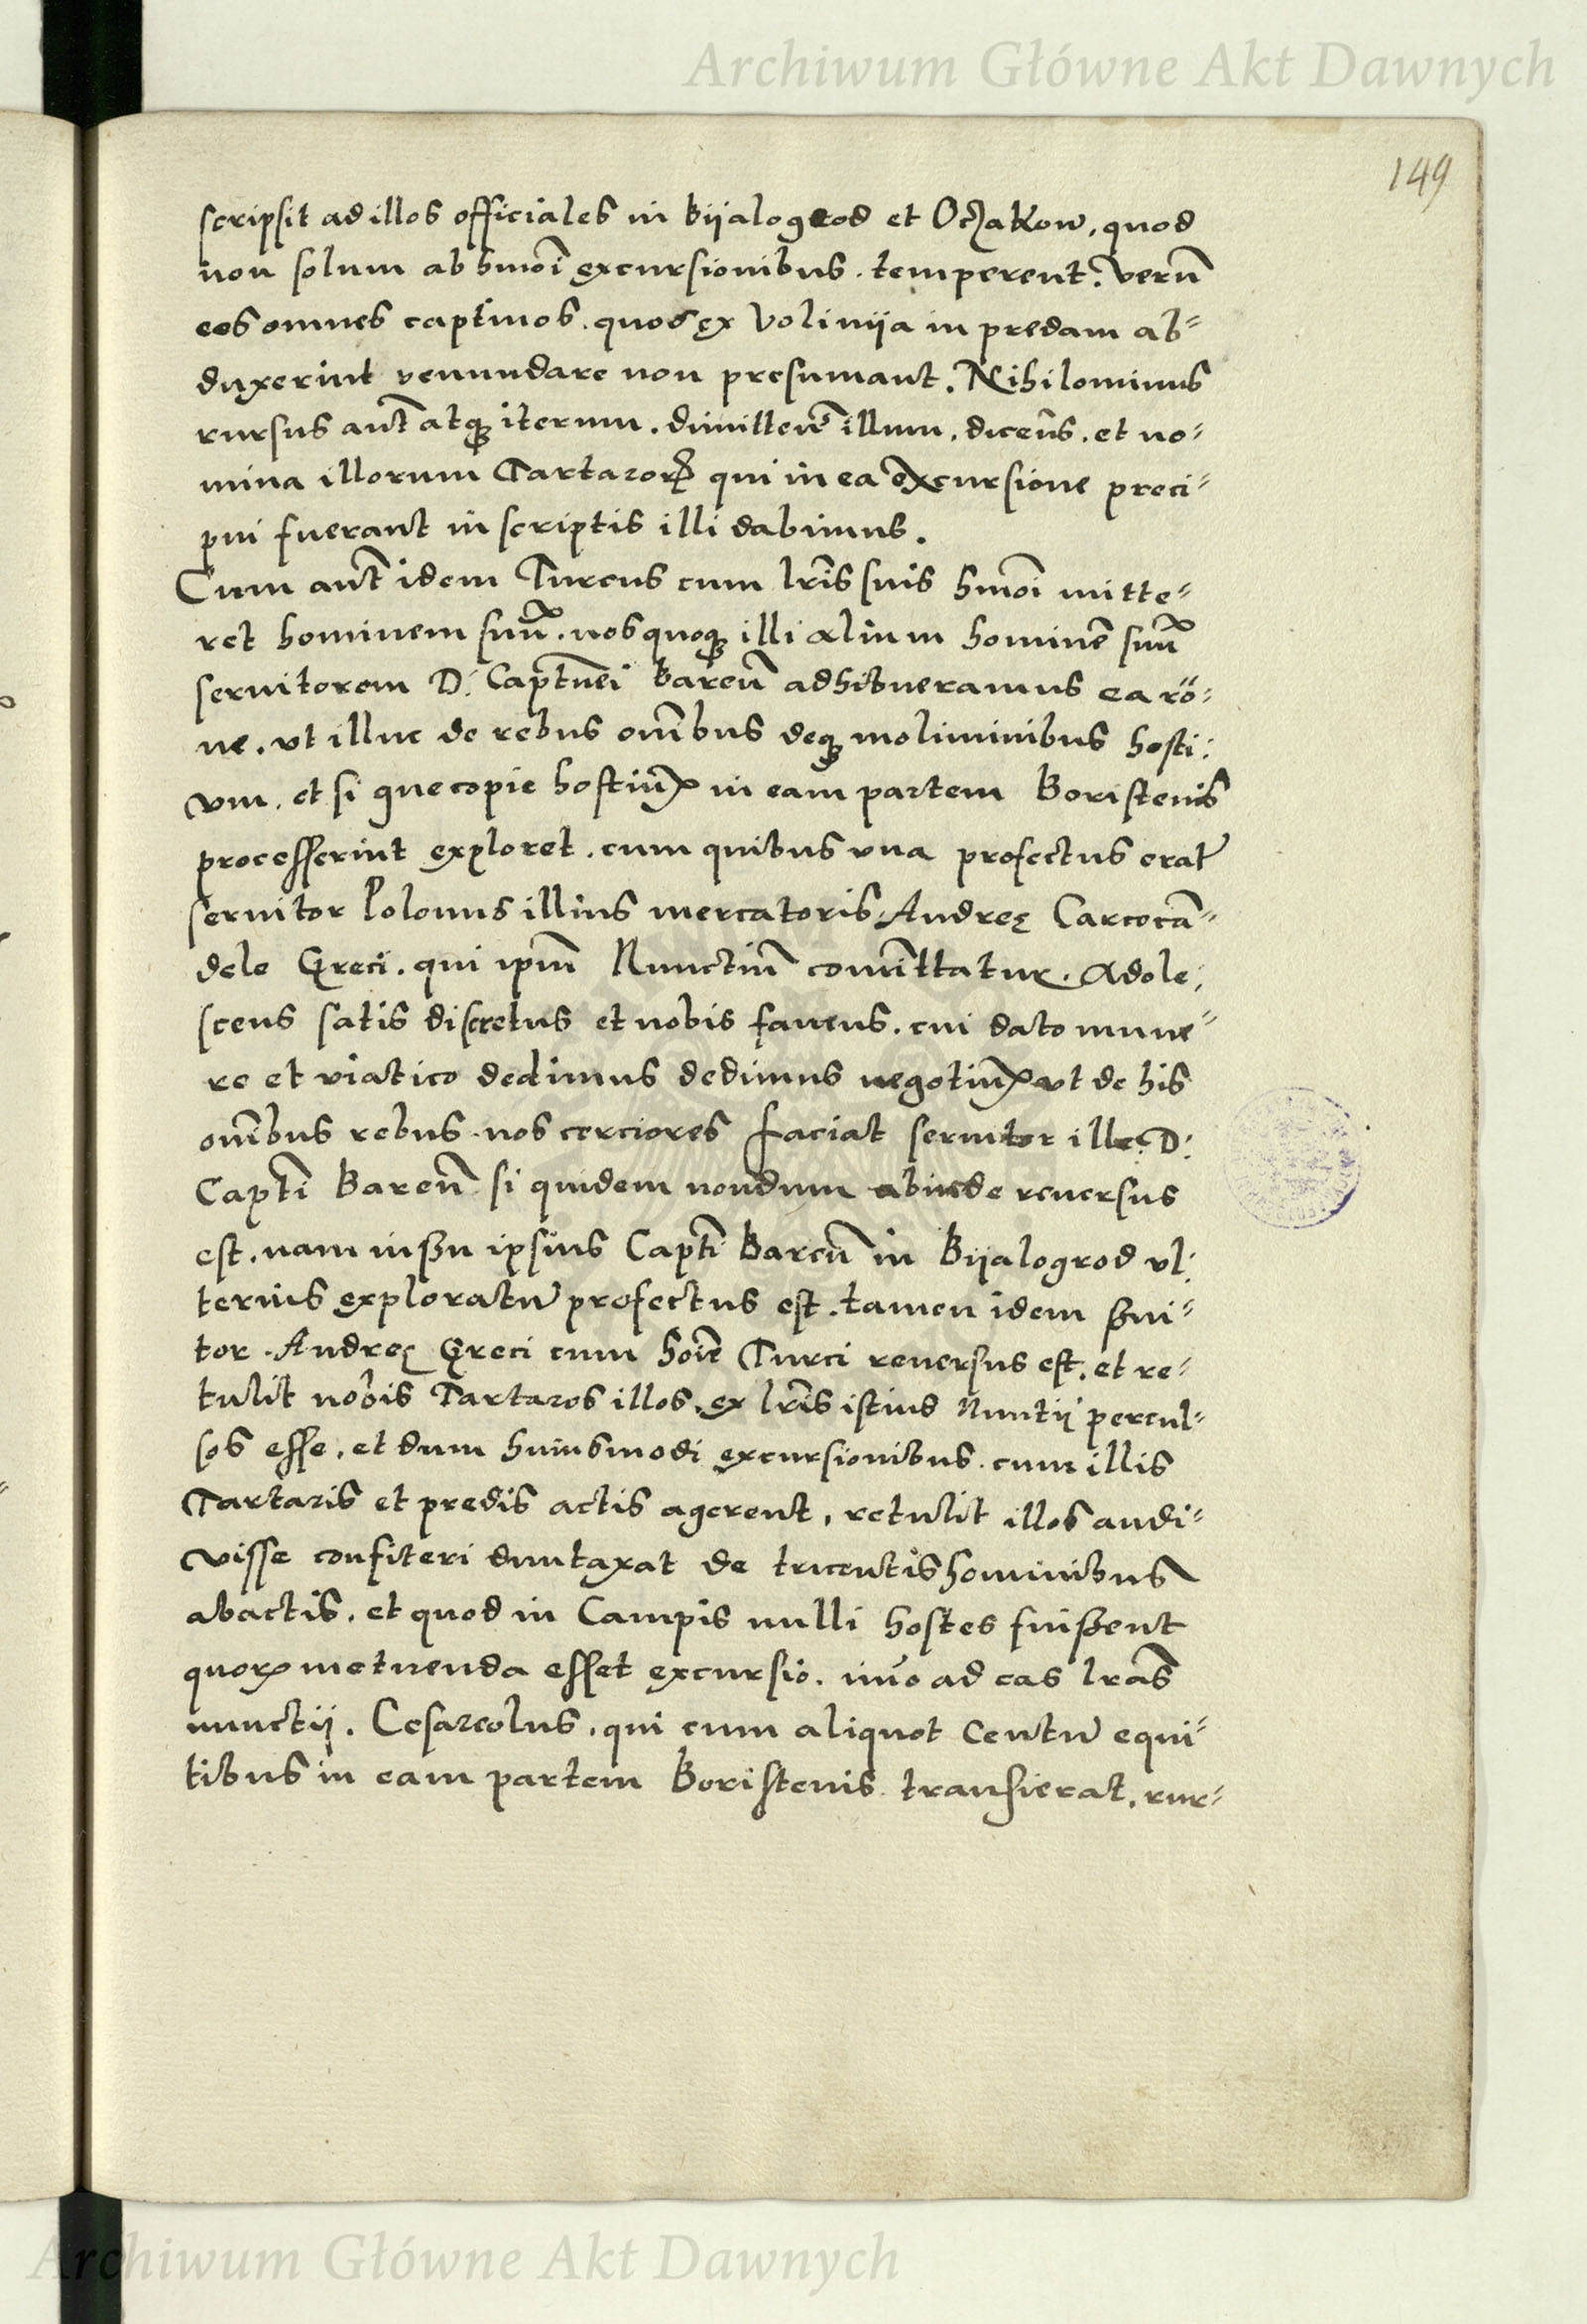 Archiwum Główne Akt Dawnych
149
scripsit ad illos officiales in Bijalogrod et Oczakow, quod
non solum ab hmōi excursionibus. temperent. verū
eos omnes captiuos. quos ex Volinija in predam ab=
duxerint venundare non presumant. Nihilominus
rursus aūt atqꝫ iterum. dimittens illum. dicens. et no=
mina illorum Tartarorꝝ qui in ea excursione preci=
pui fuerant in scriptis illi dabimus.
Cum aūt idem Turcus cum lrīs suis hmōi mitte=
ret hominem suū. nos quoqꝫ illi alium hominē suū
seruitorem D. Captnei Bareñ adhibueramus ea rō=
ne. vt illuc de rebus oībus deqꝫ moliminibus hosti:
vm. et si que copie hostiū in eam partem Boristenis
processerint exploret. cum quibus vna profectus erat
seruitor Polonus illius mercatoris Andreę Carcocā=
dele Greci. qui ipm̄ Nunctiū comittatur. Adole:
scens satis discretus et nobis fauens. cui dato mune=
re et viatico dedimus dedimus negotiū vt de his
oībus rebus nos cerciores faciat seruitor ille D:
Captī Bareñ si quidem nondum abinde reuersus
est. nam iussu ipsius Captī Bareñ in Bijalogrod vl:
terius exploratū profectus est. tamen idem ßui=
tor Andreę Greci cum hoīe Turci reuersus est. et re=
tulit nobis Tartaros illos. ex lrīs istius Nuntij percul=
sos esse. et dum huiusmodi excursionibus. cum illis
Tartaris et predis actis agerent, retulit illos audi=
visse confiteri duntaxat de tricentis hominibus
abactis. et quod in Campis nulli hostes fuißent
quorꝝ metuenda esset excursio. imo ad eas lrās
nunctij. Cesareolus. qui cum aliquot centū equi=
tibus in eam partem Boristenis transierat. rur=
Archiwum Główne Akt Dawnych